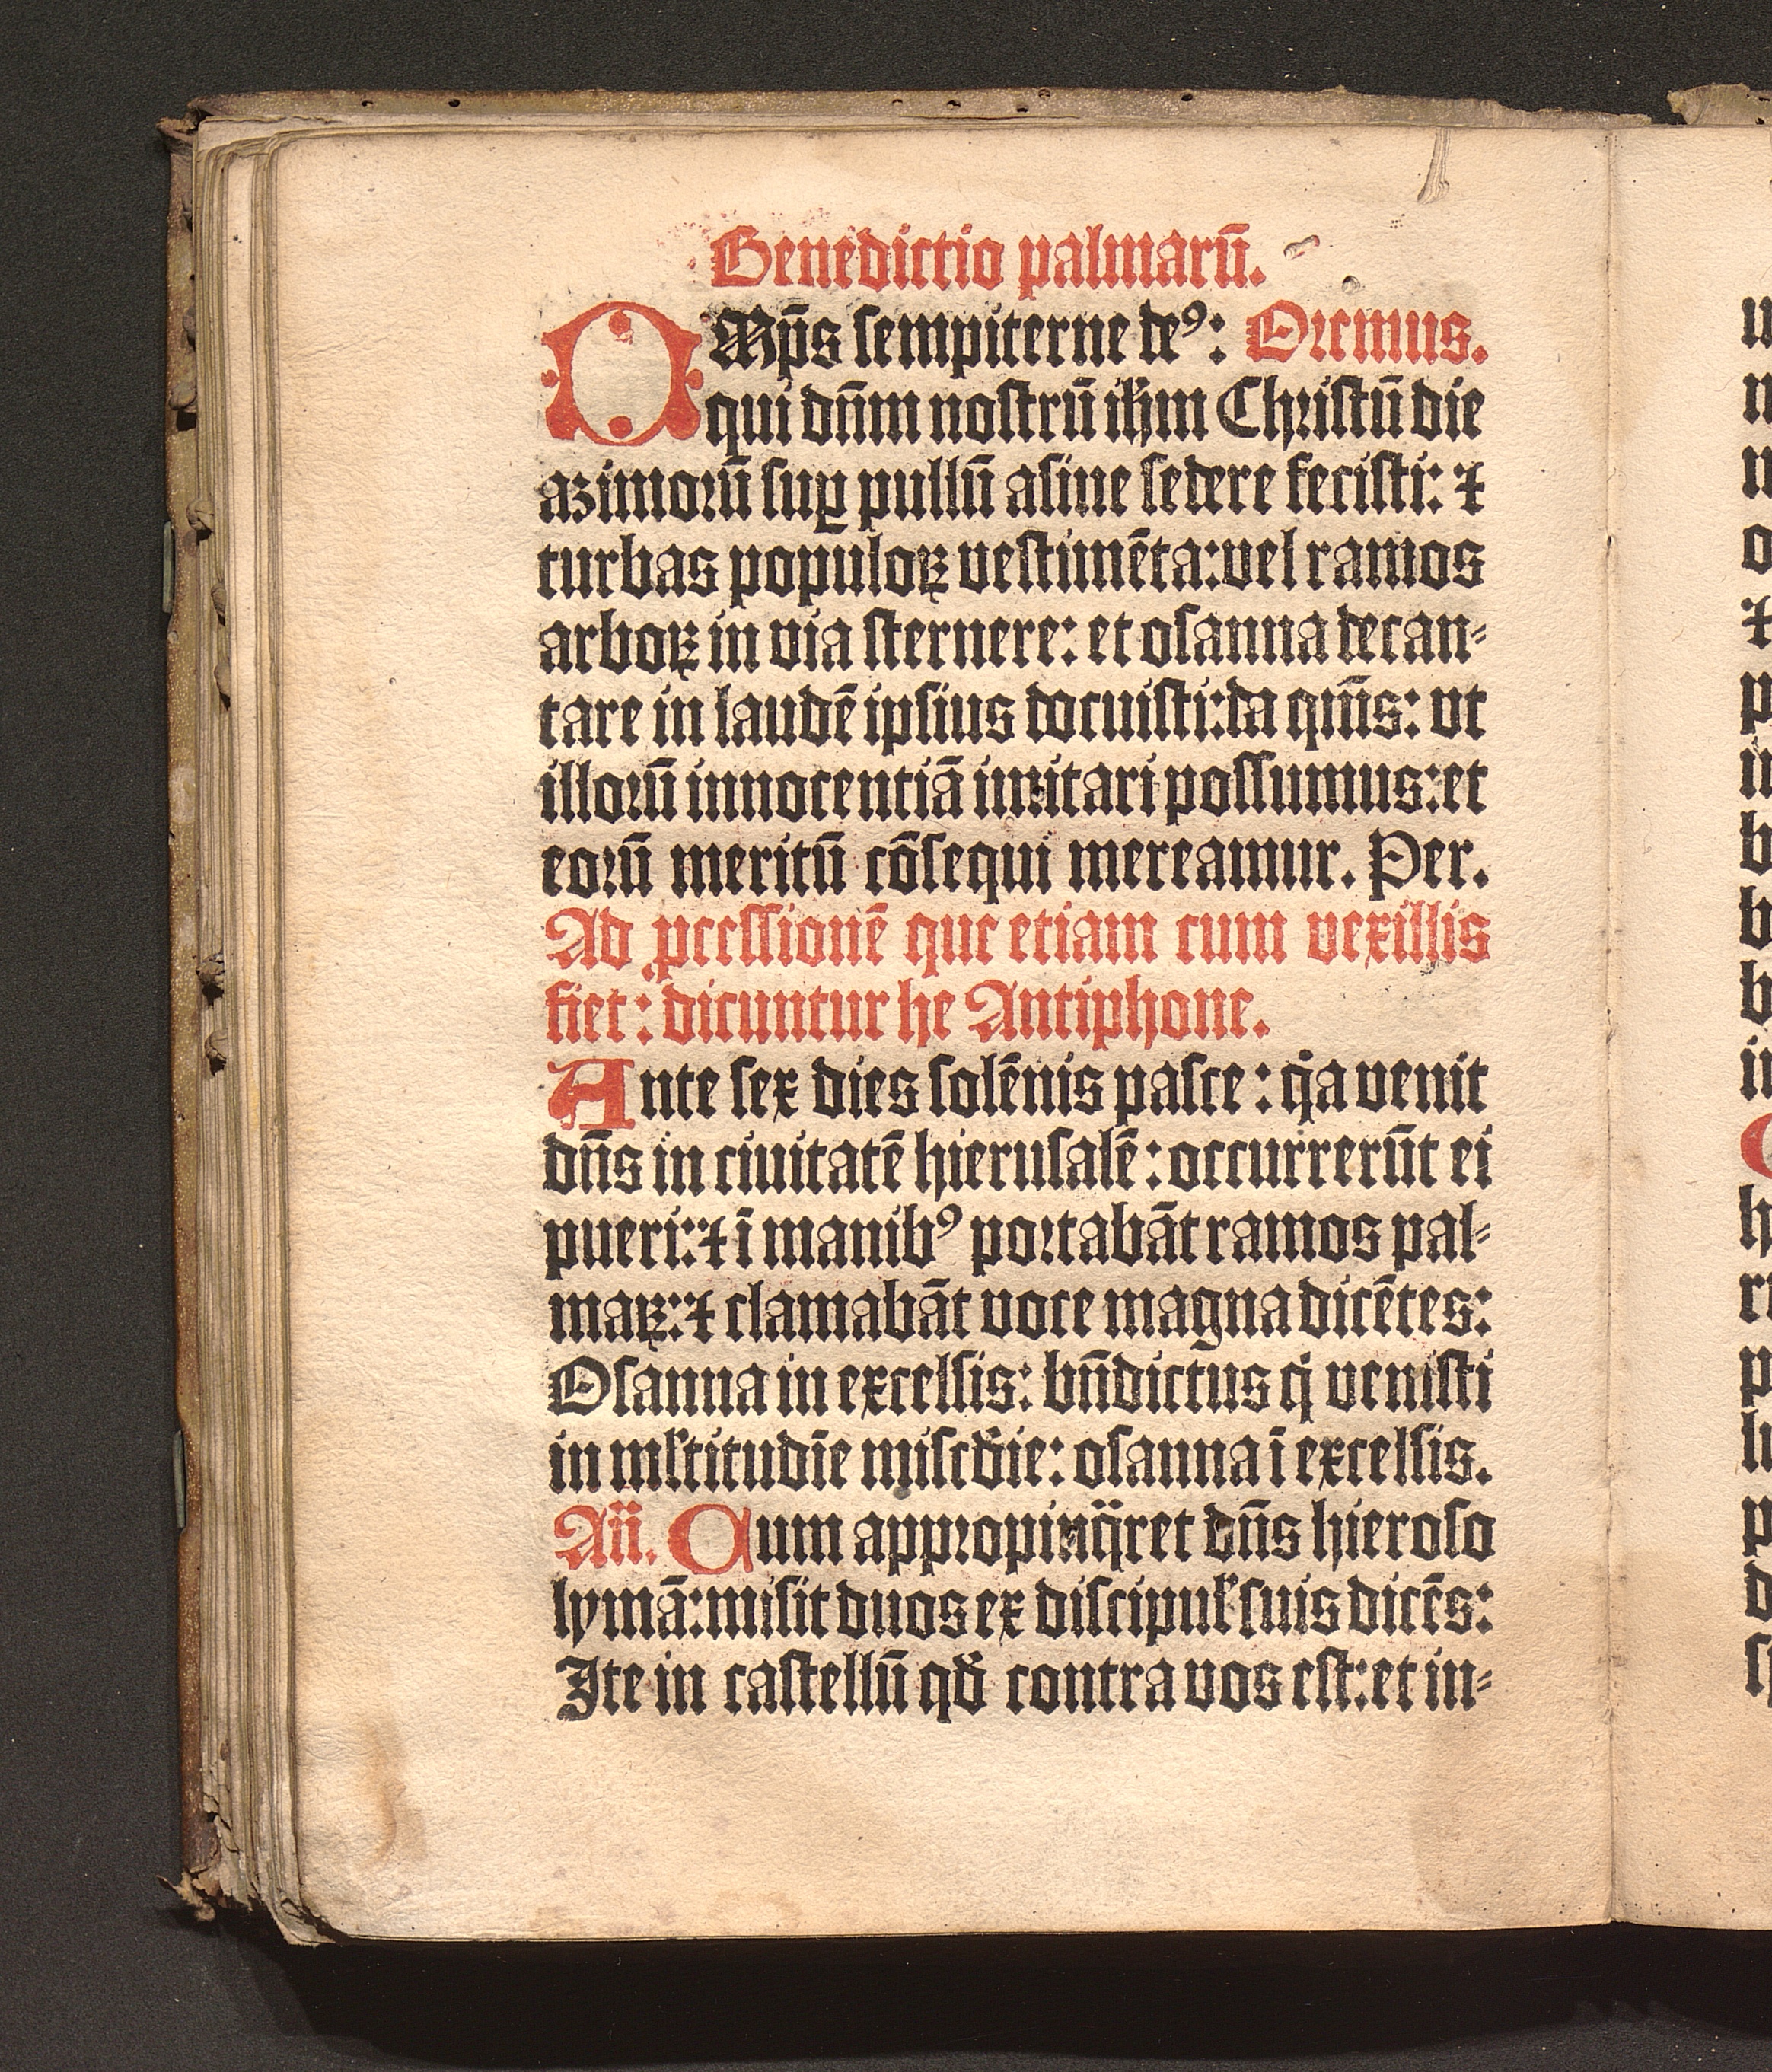 Benedictio palmarū.
OMp̄s sempiterne deꝰ: Oremus.
qui dn̄m nostrū ih̄m Christū die
azimorū suꝑ pullū asine sedere fecisti: ⁊
turbas populoꝝ vestimēta: vel ramos
arboꝝ in via sternere: et osanna decan⸗
tare in laudē ipsius docuisti: da qm̄s: vt
illorū innocentiā imitari possumus: et
eorū meritū cōsequi mereamur. Per.
Ad ꝓcessionē que etiam cum vexillis
fiet: dicuntur he Antiphone.
Ante sex dies solēnis pasce: qͣn venit
dn̄s in ciuitatē hierusalē: occurrerūt ei
pueri: ⁊ ī manibꝰ portabāt ramos pal⸗
maꝝ: ⁊ clamabāt voce magna dicētes:
Osanna in excelsis: bn̄dictus qͥ venisti
in ml̄titudīe misc̄die: osanna ī excelsis.
An̄. Cum appropinqͣret dn̄s hieroso
lymā: misit duos ex discipul̓ suis dicēs:
Ite in castellū qd̄ contra vos est: et in⸗